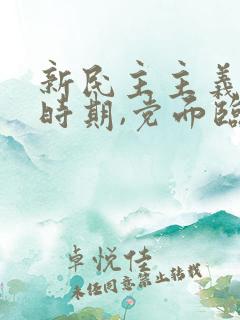 新民主主義
時期,党而臨
卓悦佳
未任同意禁止转载